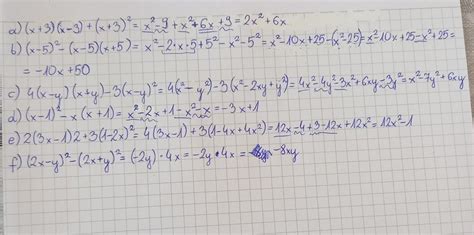 a) (x+3)(x-3)+(x+3)² = x²-9+x²+6x+9 = 2x²+6x
b) (x-5)²-(x-5)(x+5) = x²-2·x·5+5²-x²-5² = x²-10x+25-(x²-25) = x²-10x+25-x²+25 =
= -10x+50
c) 4(x-y)(x+y)-3(x-y)² = 4(x²-y²)-3(x²-2xy+y²) = 4x²-4y²-3x²+6xy-3y² = x²-7y²+6xy
d) (x-1)²-x(x+1) = x²-2x+1-x²-x = -3x+1
e) 2(3x-1)2+3(1-2x)² = 4(3x-1)+3(1-4x+4x²) = 12x-4+3-12x+12x² = 12x²-1
f) (2x-y)²-(2x+y)² = (-2y)·4x = -2y·4x = -8xy